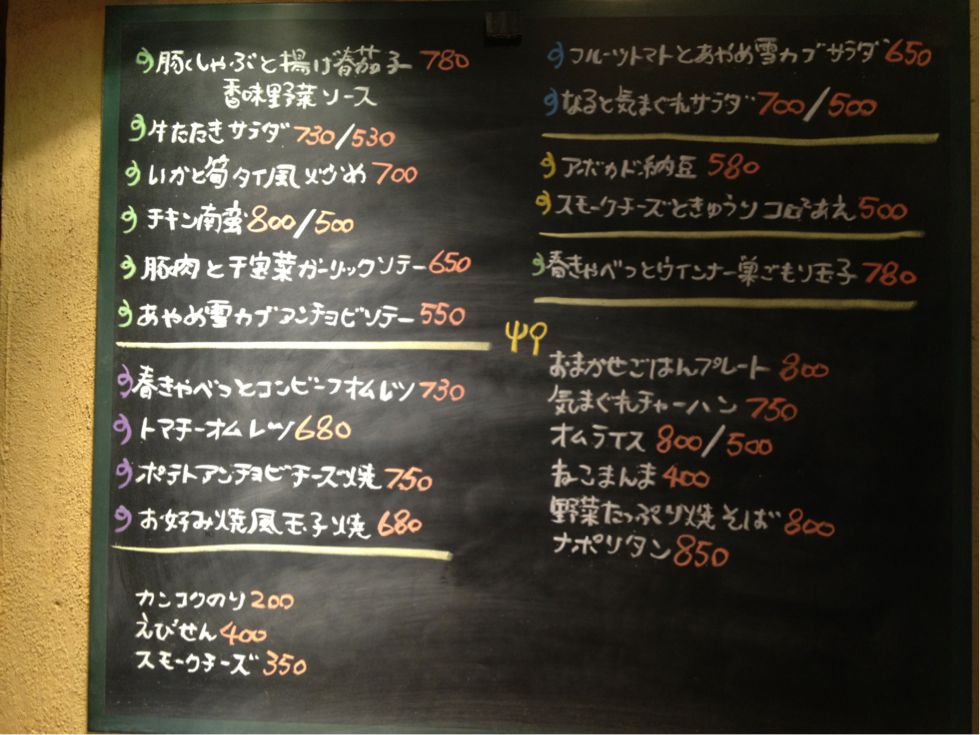 豚しゃぶと揚げ蕃茄子 780
香味野菜ソース
牛たたきサラダ 730/530
いかと筍タイ風炒め 700
チキン南蛮 800/500
豚肉と干宝菜ガーリックソテー 650
あやめ雪カブアンチョビソテー 550
春きゃべつとコンビーフオムレツ 730
トマチーオムレツ 680
ポテトアンチョビチーズ焼 750
お好み焼風玉子焼 680
カンコクのり 200
えびせん 400
スモークチーズ 350
フルーツトマトとあやめ雪カブサラダ 650
なると気まぐれサラダ 700/500
アボカド納豆 580
スモークチーズときゅうり あえ 500
春きゃべつとウインナー巣ごもり玉子 780
おまかせごはんプレート 800
気まぐれチャーハン 750
オムライス 800/500
ねこまんま 400
野菜たっぷり焼そば 800
ナポリタン 850